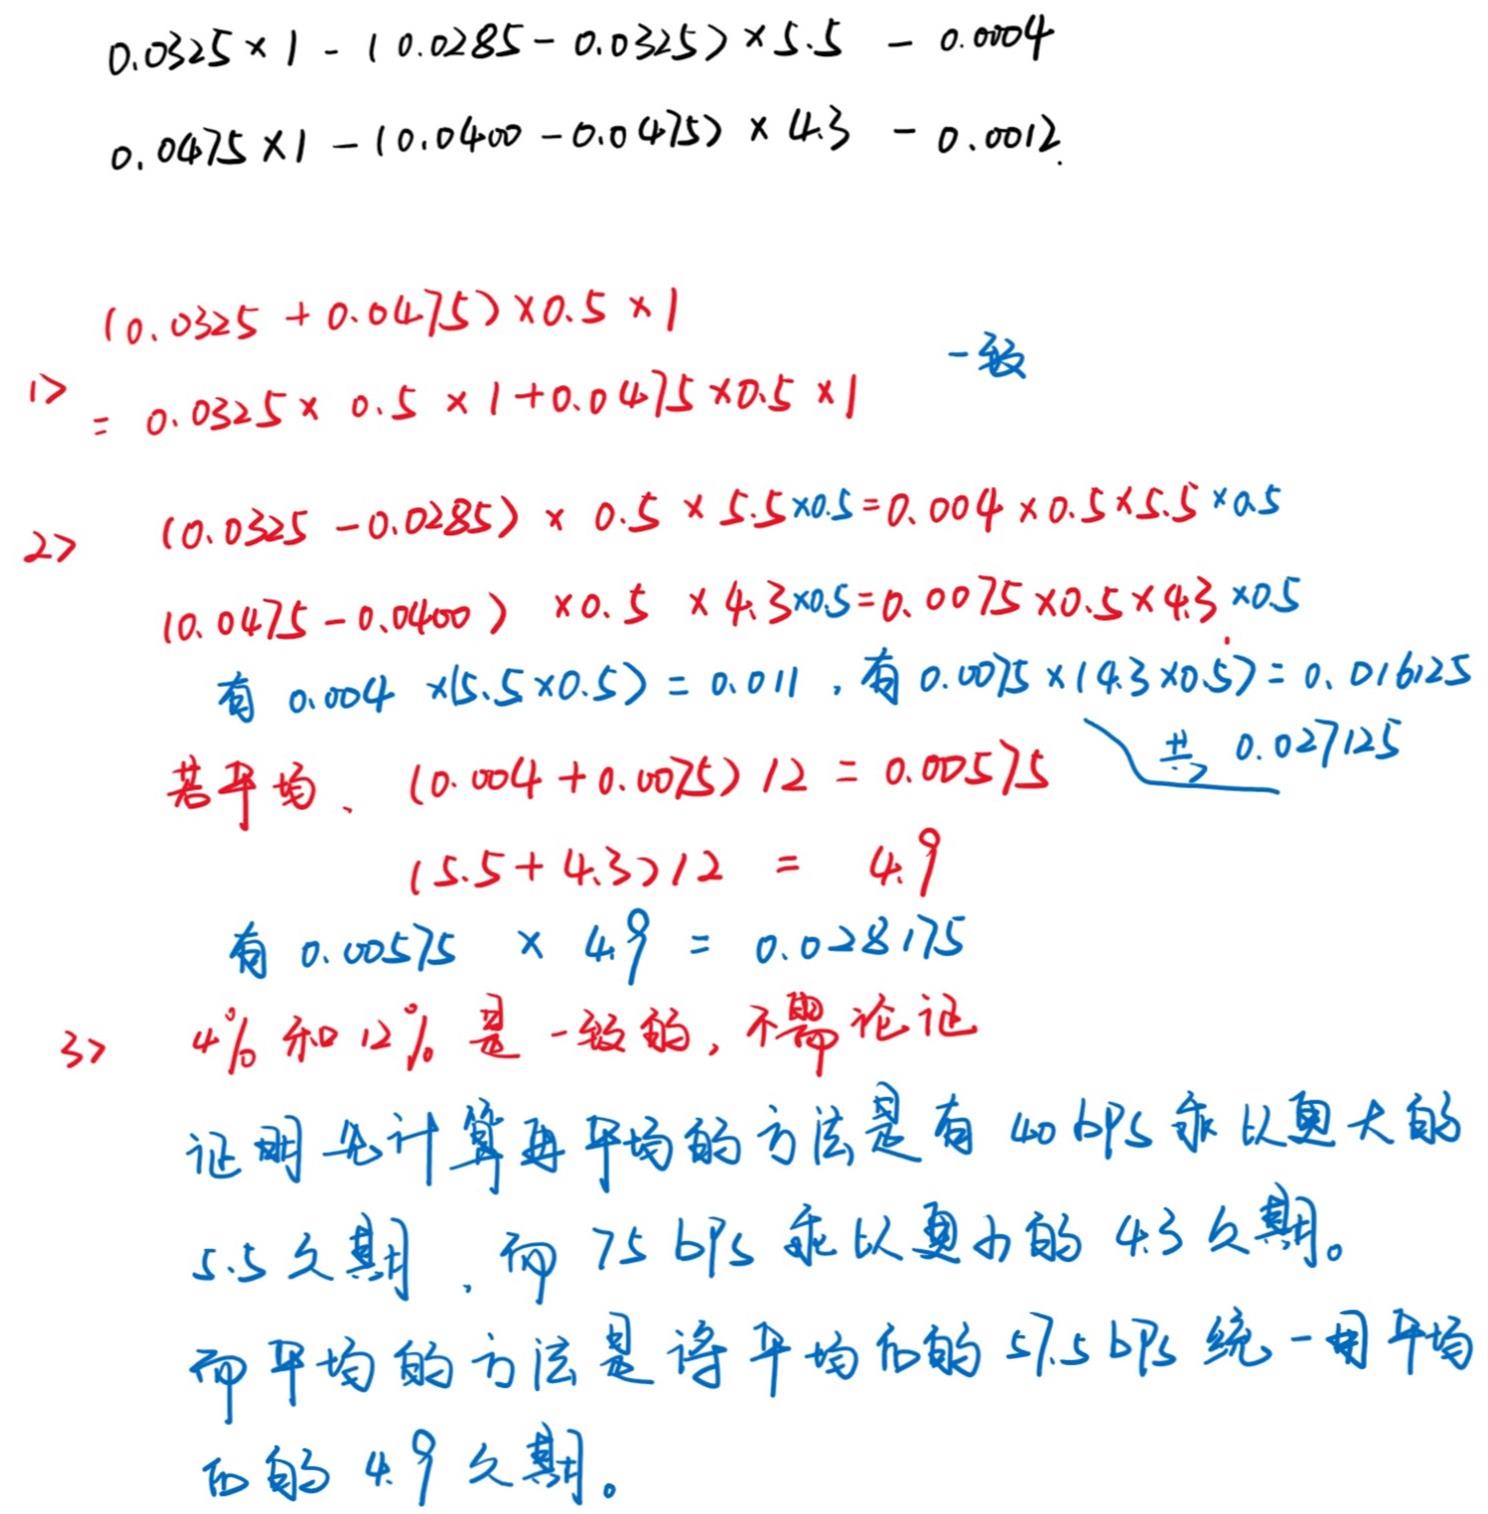 0.0325 × 1 - (0.0285 - 0.0325) × 5.5 - 0.0004
0.0475 × 1 - (0.0400 - 0.0475) × 4.3 - 0.0012.
(0.0325 + 0.0475) × 0.5 × 1
一致
1> = 0.0325 × 0.5 × 1 + 0.0475 × 0.5 × 1
2> (0.0325 - 0.0285) × 0.5 × 5.5 × 0.5 = 0.004 × 0.5 × 5.5 × 0.5
(0.0475 - 0.0400) × 0.5 × 4.3 × 0.5 = 0.0075 × 0.5 × 4.3 × 0.5
有 0.004 × (5.5 × 0.5) = 0.011 , 有 0.0075 × (4.3 × 0.5) = 0.016125
共 0.027125
若平均、 (0.004 + 0.0075) / 2 = 0.00575
(5.5 + 4.3) / 2 = 4.9
有 0.00575 × 4.9 = 0.028175
3> 4% 和 12% 是一致的, 不需论证
证明先计算再平均的方法是有 40 bps 乘以更大的
5.5 久期 , 而 75 bps 乘以更小的 4.3 久期。
而平均的方法是将平均后的 57.5 bps 统一用平均
后的 4.9 久期。